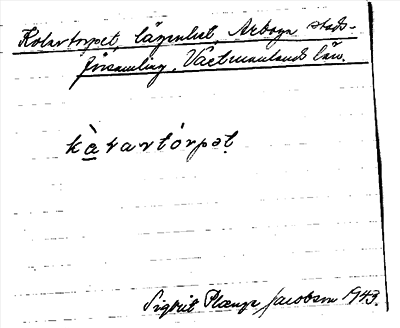 Kolartorpet, lägenhet, Arboga stads-
församling, Västmanlands län.
kàlartórpət
Sigrid Jacobson 1943.